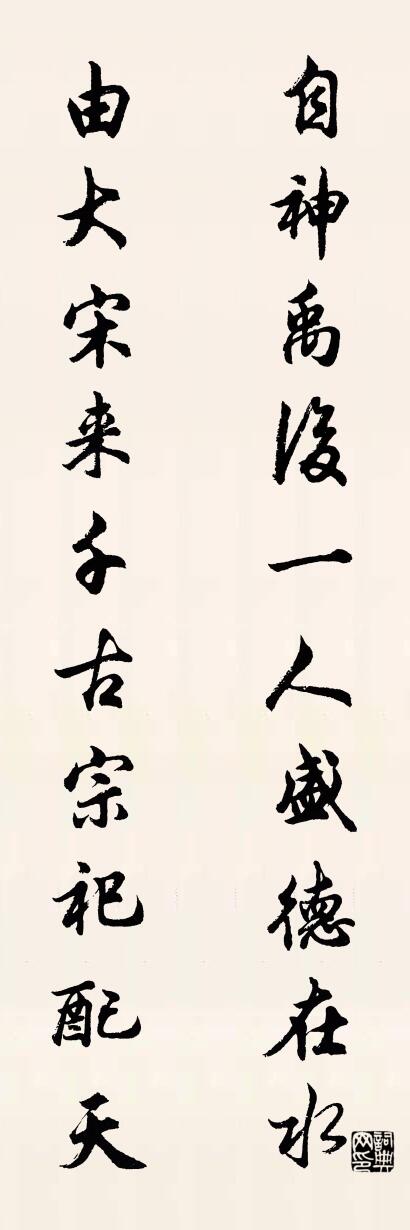 自神禹後一人盛德在水
由大宋来千古宗祀配天
詞典網印